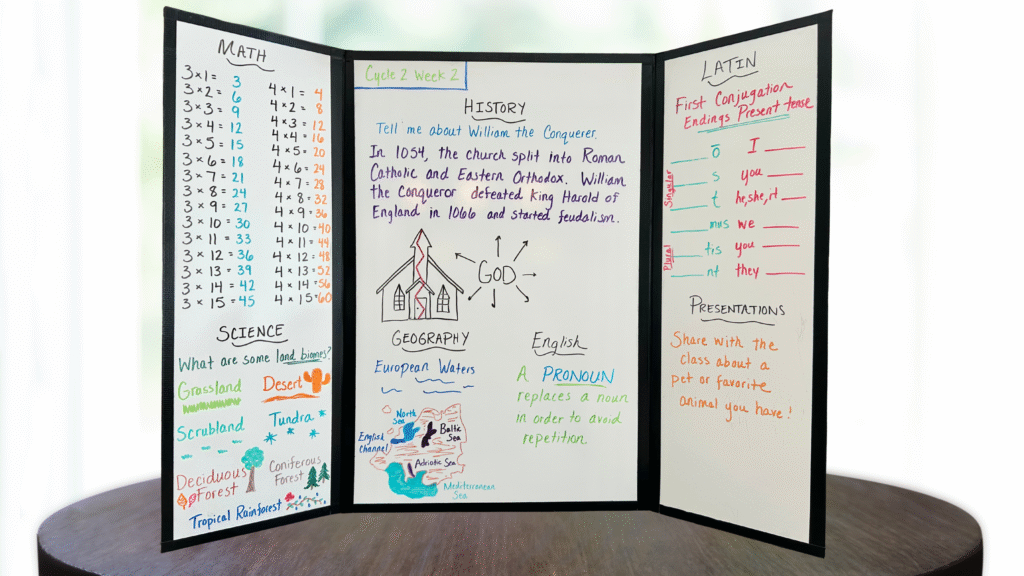 MATH
3×1= 3
3×2= 6
3×3= 9
3×4= 12
3×5= 15
3×6= 18
3×7= 21
3×8= 24
3×9= 27
3×10= 30
3×11= 33
3×12= 36
3×13= 39
3×14= 42
3×15= 45
4×1= 4
4×2= 8
4×3= 12
4×4= 16
4×5= 20
4×6= 24
4×7= 28
4×8= 32
4×9= 36
4×10= 40
4×11= 44
4×12= 48
4×13= 52
4×14= 56
4×15= 60
SCIENCE
What are some land biomes?
Grassland
Desert
Scrubland
Tundra
Deciduous
Forest
Coniferous
Forest
Tropical Rainforest
Cycle 2 Week 2
HISTORY
Tell me about William the Conquerer.
In 1054, the church split into Roman
Catholic and Eastern Orthodox. William
the Conqueror defeated King Harold of
England in 1066 and started feudalism.
GOD
GEOGRAPHY
European Waters
North
Sea
Baltic
Sea
English
Channel
Adriatic Sea
Mediterranean
Sea
English
A PRONOUN
replaces a noun
in order to avoid
repetition.
LATIN
First Conjugation
Endings Present tense
Singular
ō I
s you
t he, she, it
Plural
mus we
tis you
nt they
PRESENTATIONS
Share with the
class about a
pet or favorite
animal you have!